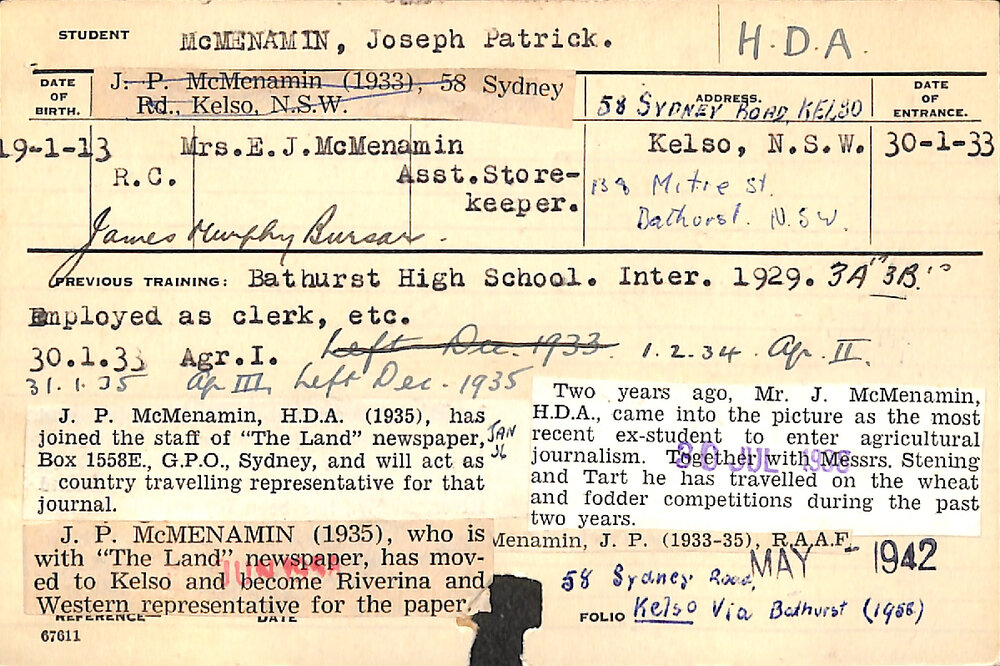 STUDENT McMENAMIN, Joseph Patrick. H.D.A.
DATE OF BIRTH.
J. P. McMenamin (1933), 58 Sydney
Rd., Kelso, N.S.W.
ADDRESS.
58 SYDNEY ROAD, KELSO
DATE OF ENTRANCE.
19-1-13 Mrs.E.J.McMenamin Kelso, N.S.W. 30-1-33
R.C. Asst.Store-
keeper.
138 Mitre St.
Bathurst. N.S.W.
James Murphy Bursar.
PREVIOUS TRAINING: Bathurst High School. Inter. 1929. 3A" 3B."
Employed as clerk, etc.
30.1.33 Agr.I. Left Dec. 1933. 1.2.34. Ag. II.
31.1.35 Ag III. Left Dec. 1935
J. P. McMenamin, H.D.A. (1935), has
joined the staff of "The Land" newspaper,
Box 1558E., G.P.O., Sydney, and will act as
country travelling representative for that
journal.
JAN
36
Two years ago, Mr. J. McMenamin,
H.D.A., came into the picture as the most
recent ex-student to enter agricultural
journalism. Together with Messrs. Stening
and Tart he has travelled on the wheat
and fodder competitions during the past
two years.
30 JUL
J. P. McMENAMIN (1935), who is
with "The Land" newspaper, has mov-
ed to Kelso and become Riverina and
Western representative for the paper.
Menamin, J. P. (1933-35), R.A.A.F.
MAY 1942
58 Sydney Road,
Kelso Via Bathurst (1958)
REFERENCE DATE FOLIO
67611